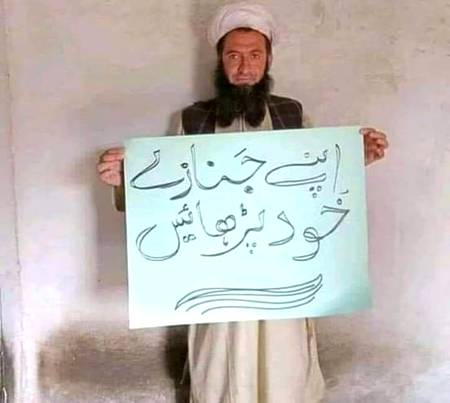 اپنے جنازے
خود پڑھائیں